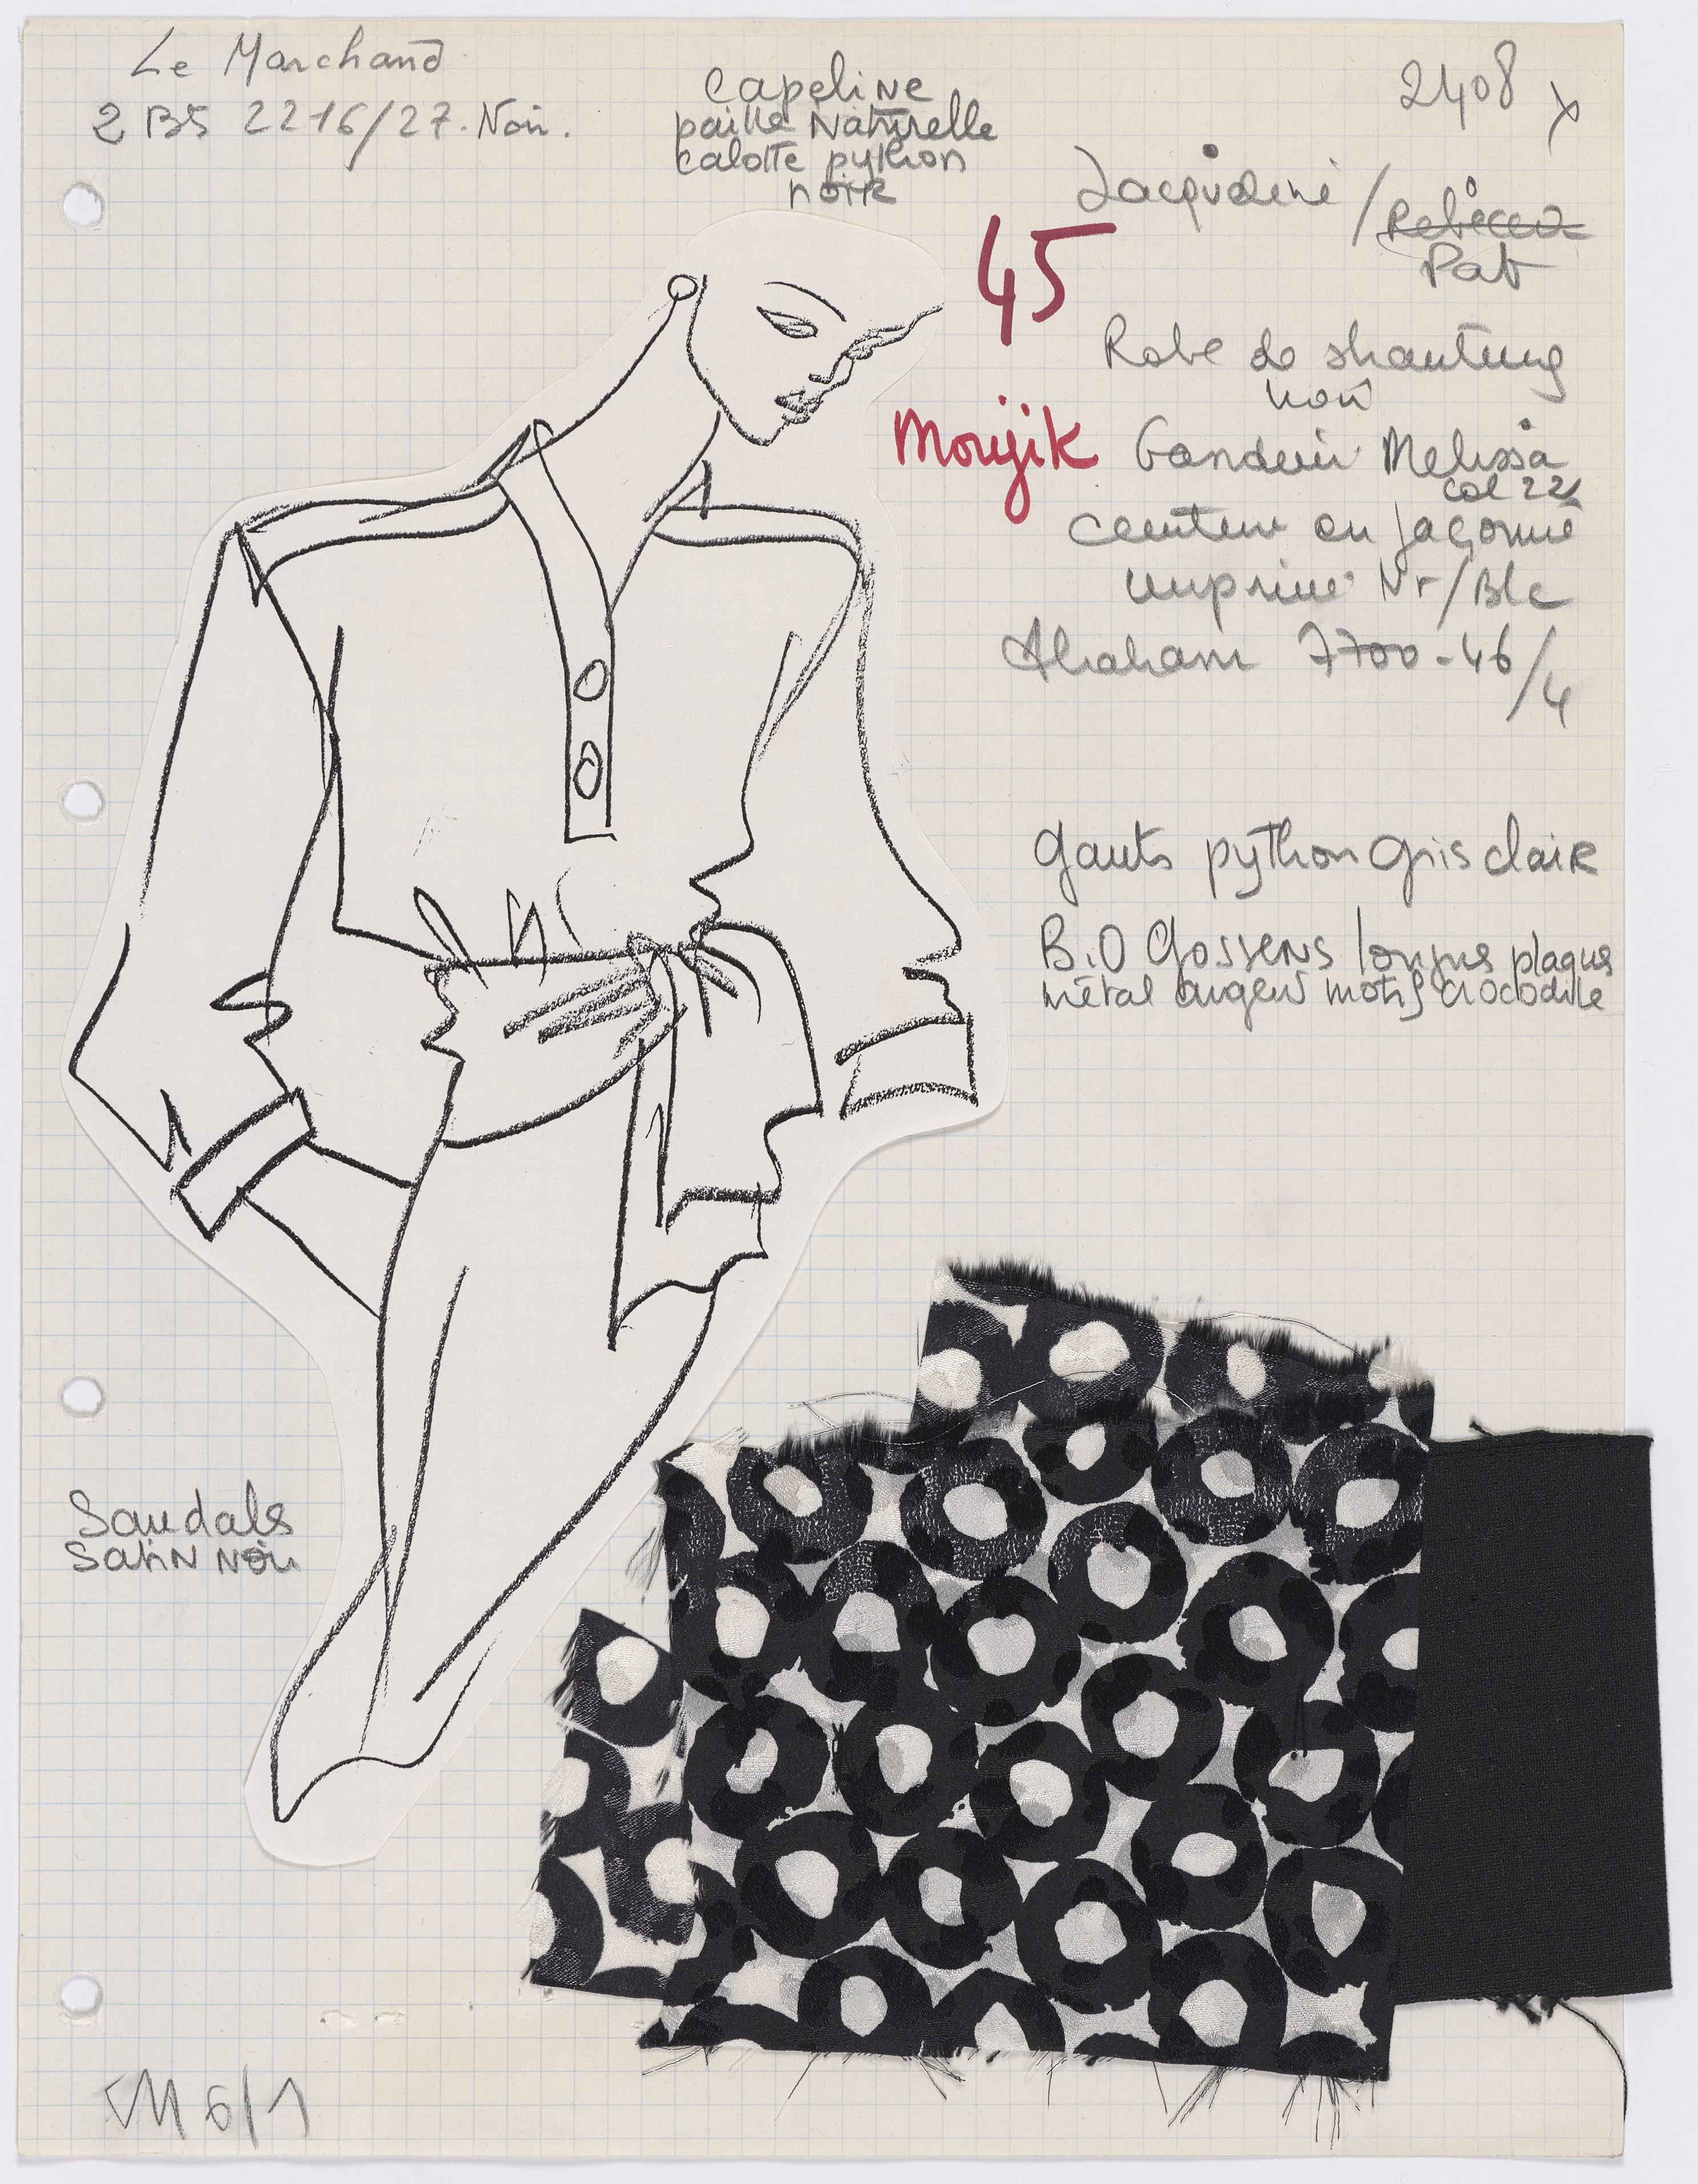 Le Marchand
2 BS 2216/27. Noir.
capeline
paille Naturelle
calotte python
noire
2408
Jacqueline / Rebecca
Pat
45
Robe de shantung
noir
Moujik
Gandini Melissa
col 22
ceinture en façonné
imprimé Nr/Blc
Abraham 7700-46/4
gants python gris clair
B.O Goossens longues plaques
métal argent motif crocodile
Sandals
Satin Noir
M 6/1